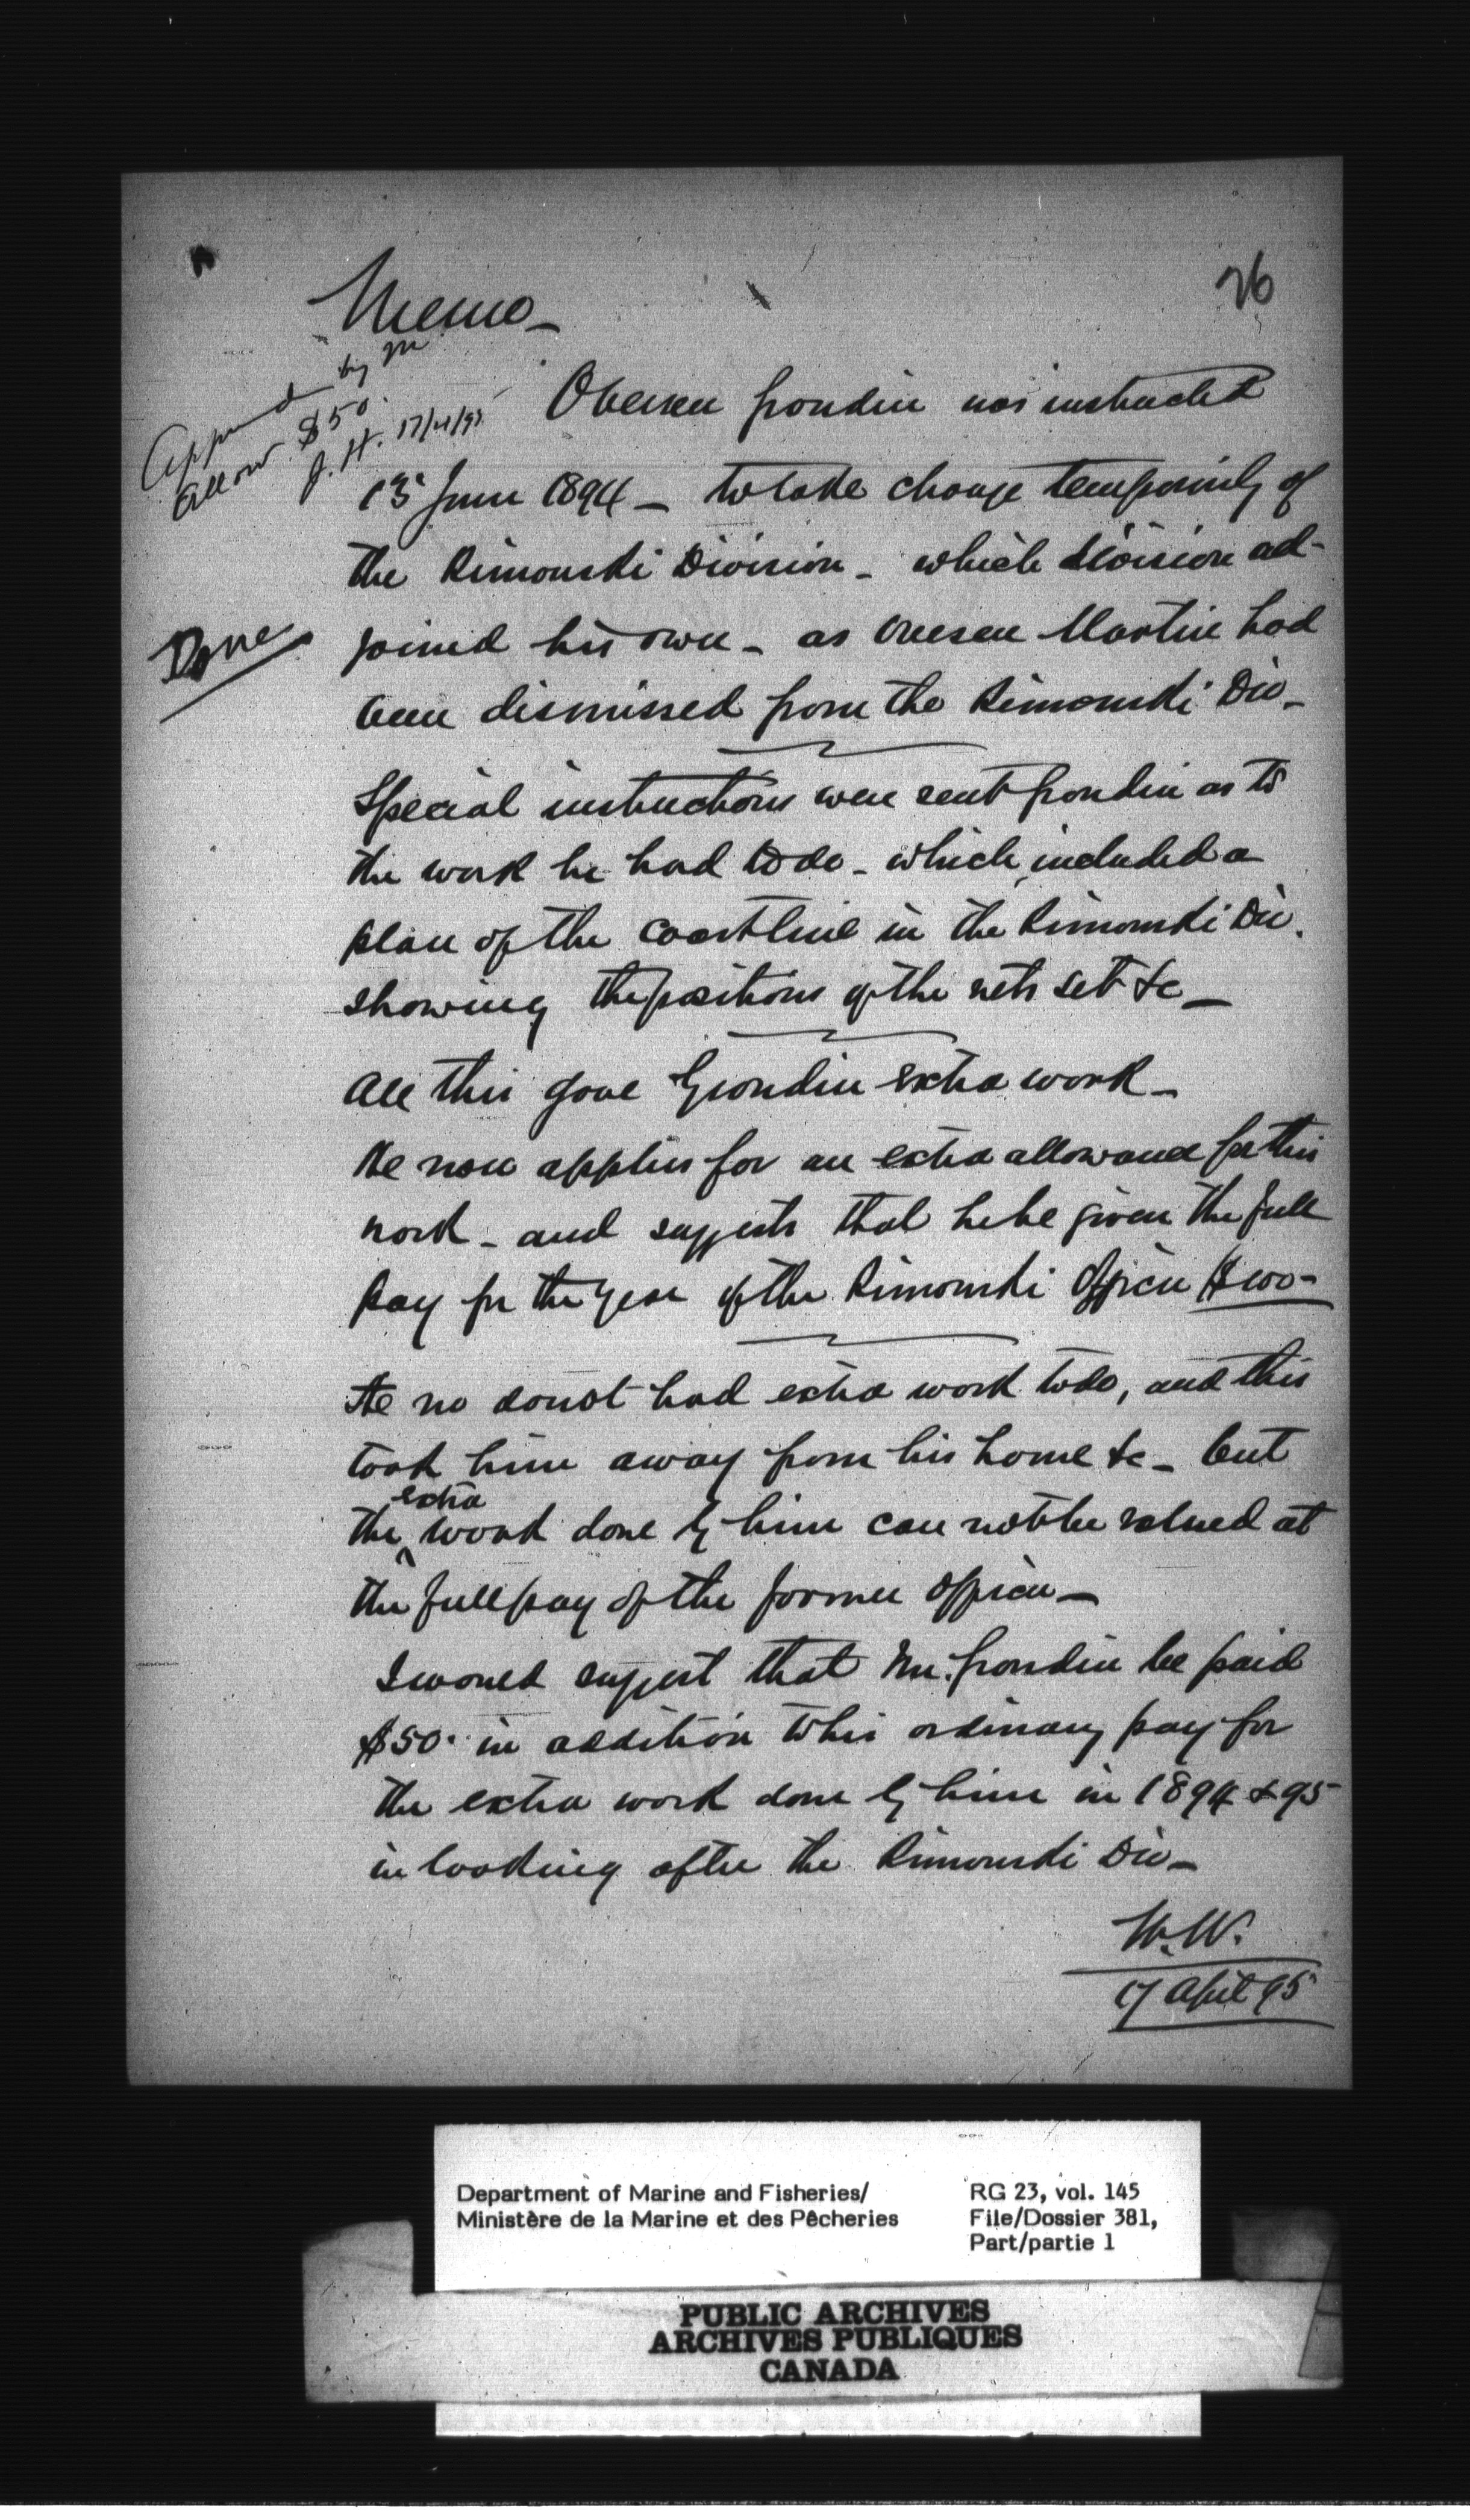 26
Memo_
Approved by M
Allow $50.
J.H. 17/4/95
Overseer Grondin was instructed
13 June 1894 _ to take charge temporarily of
the Rimouski Division _ which division ad-
joined his own _ as Overseer Martin had
been dismissed from the Rimouski Div_
Done
Special instructions were sent Grondin as to
the work he had to do _ which included a
plan of the coast line in the Rimouski Div.
showing the positions of the nets set &c _
All this gave Grondin extra work _
He now applies for an extra allowance for this
work _ and suggests that he be given the full
pay for the year of the Rimouski Officer
He no doubt had extra work to do, and this
took him away from his home &c _ but
the extra work done by him can not be valued at
the full pay of the former officer _
I would suggest that Mr. Grondin be paid
$50. in addition to his ordinary pay for
the extra work done by him in 1894 & 95
in looking after the Rimouski Div _
W.W.
17 April 95
Department of Marine and Fisheries/
Ministère de la Marine et des Pêcheries
RG 23, vol. 145
File/Dossier 381,
Part/partie 1
PUBLIC ARCHIVES
ARCHIVES PUBLIQUES
CANADA